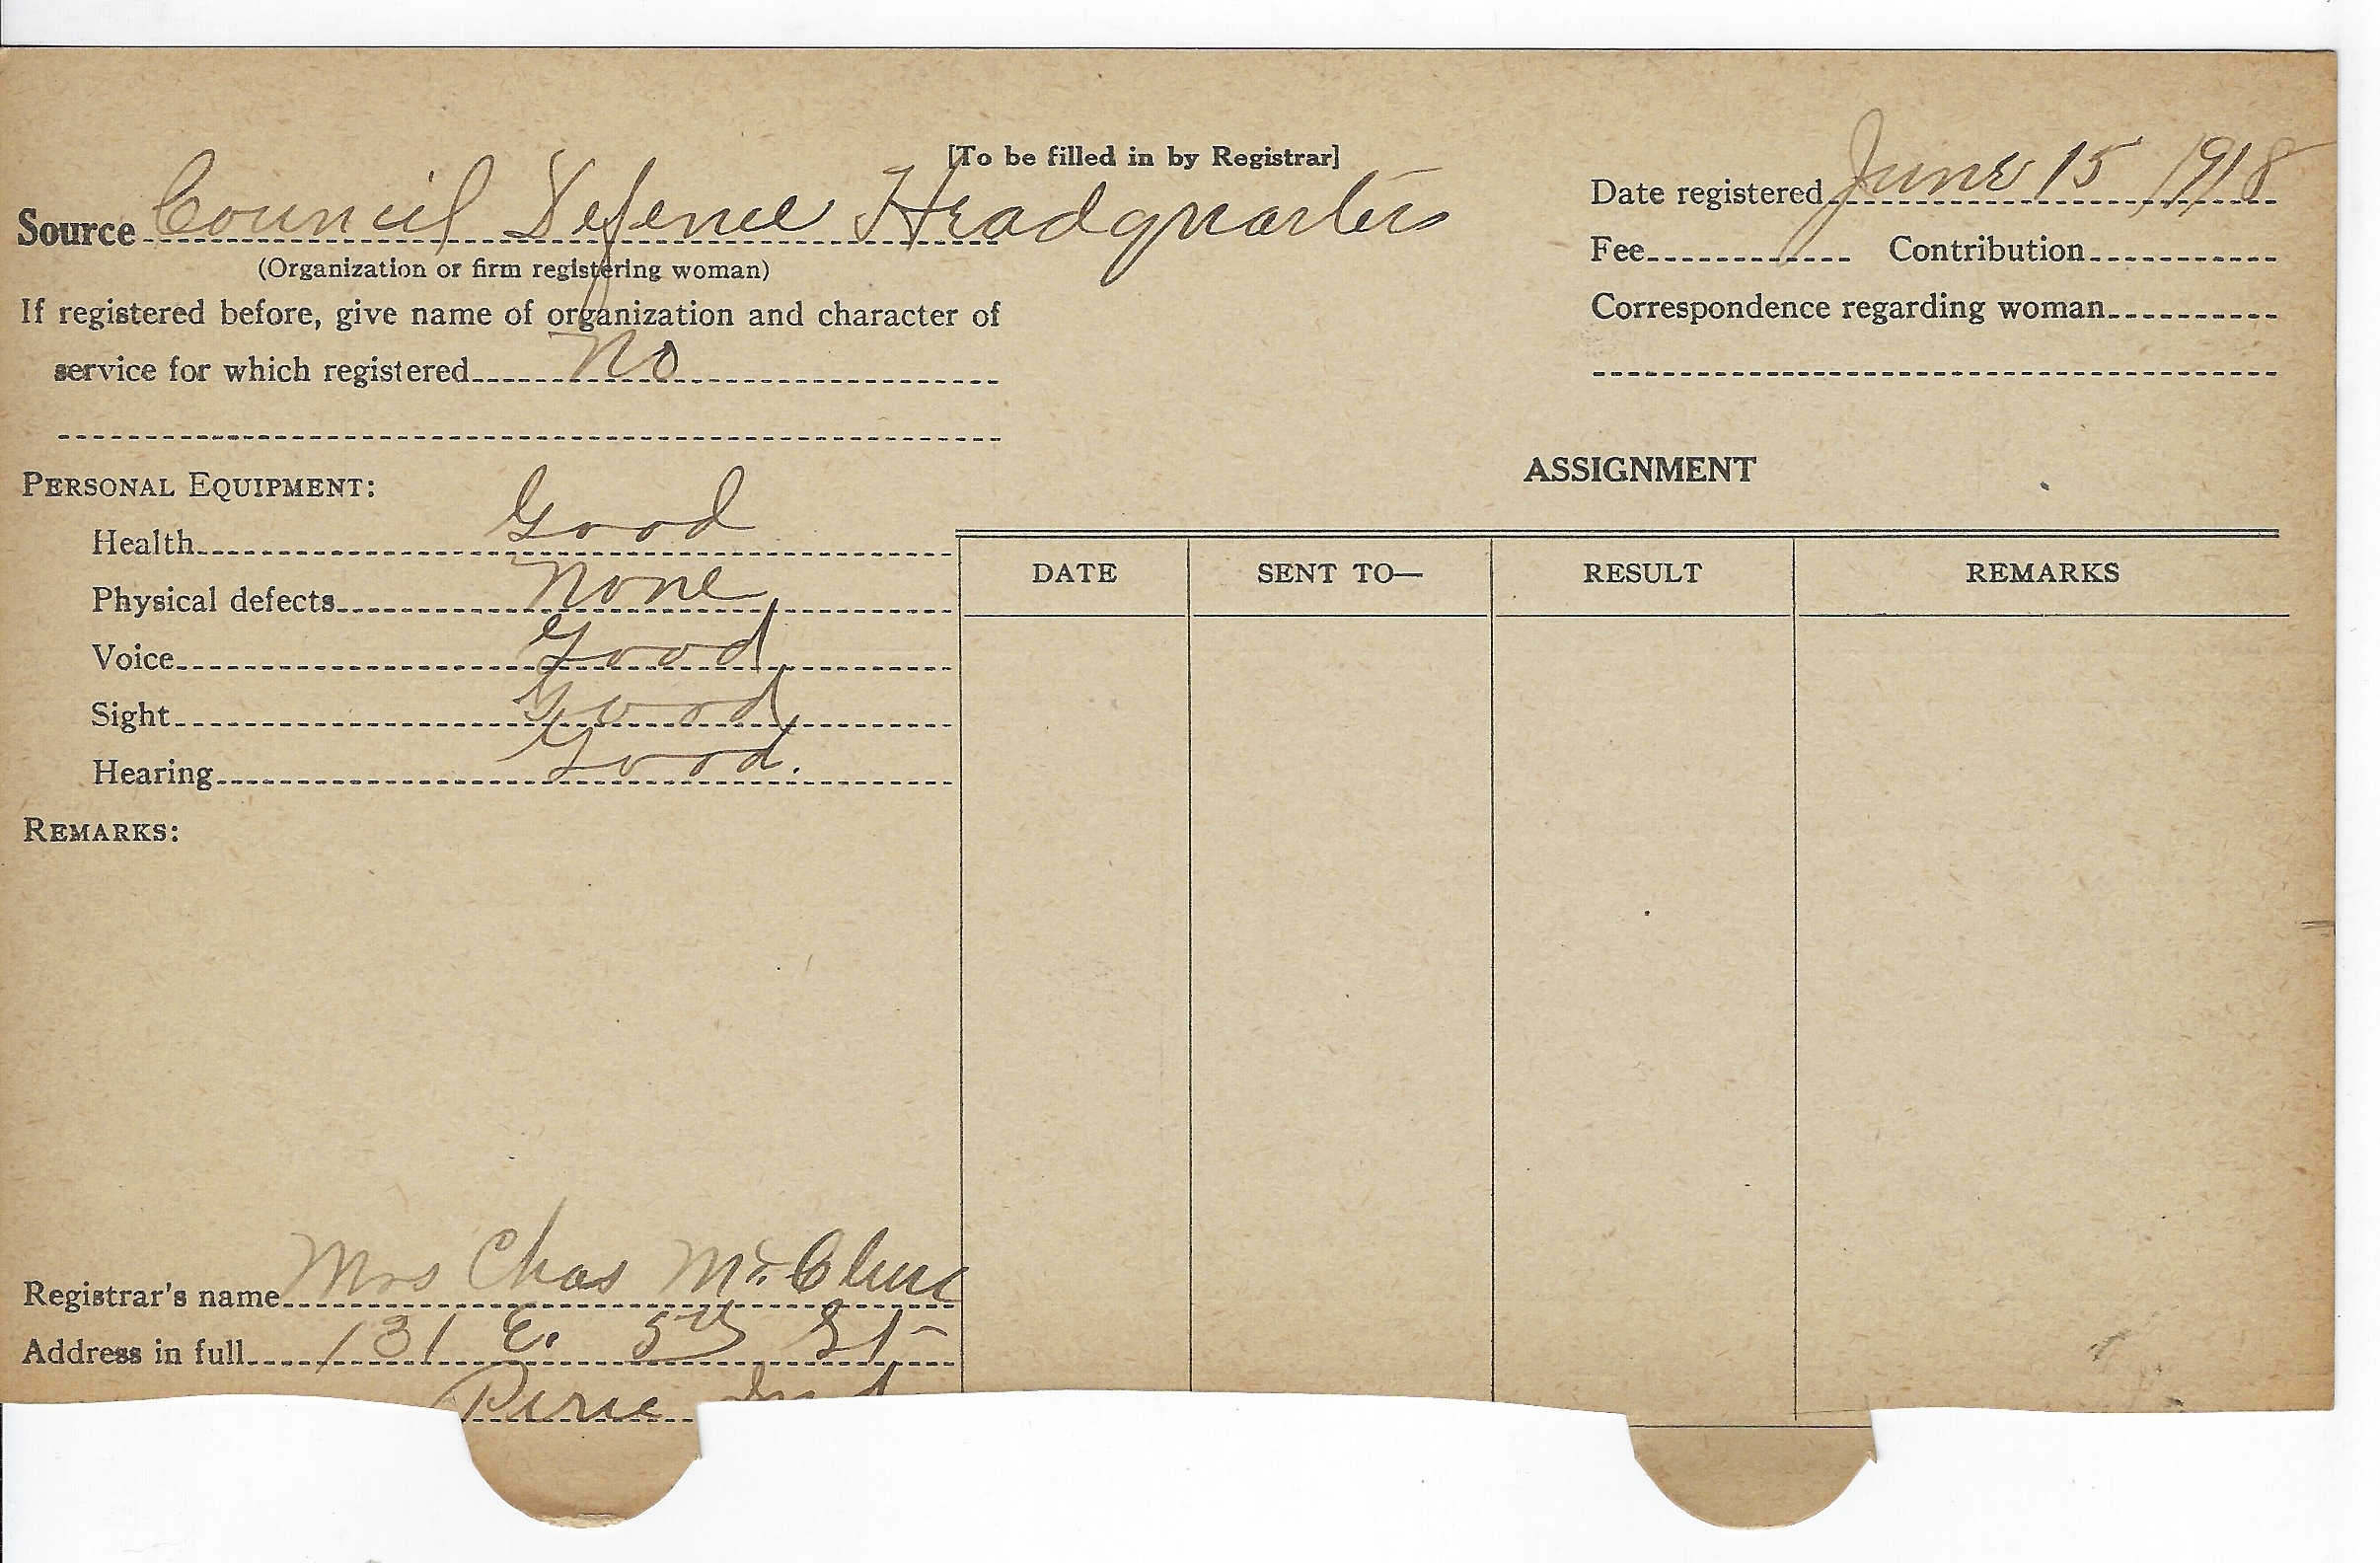 [To be filled in by Registrar]
Source Council Defence Headquarters
(Organization or firm registering woman)
If registered before, give name of organization and character of
service for which registered No
Date registered June 15, 1918
Fee Contribution
Correspondence regarding woman
PERSONAL EQUIPMENT:
Health Good
Physical defects None
Voice Good
Sight Good
Hearing Good.
REMARKS:
ASSIGNMENT
DATE SENT TO— RESULT REMARKS
Registrar's name Mrs Chas
Address in full 131 E. 5th St
Ind